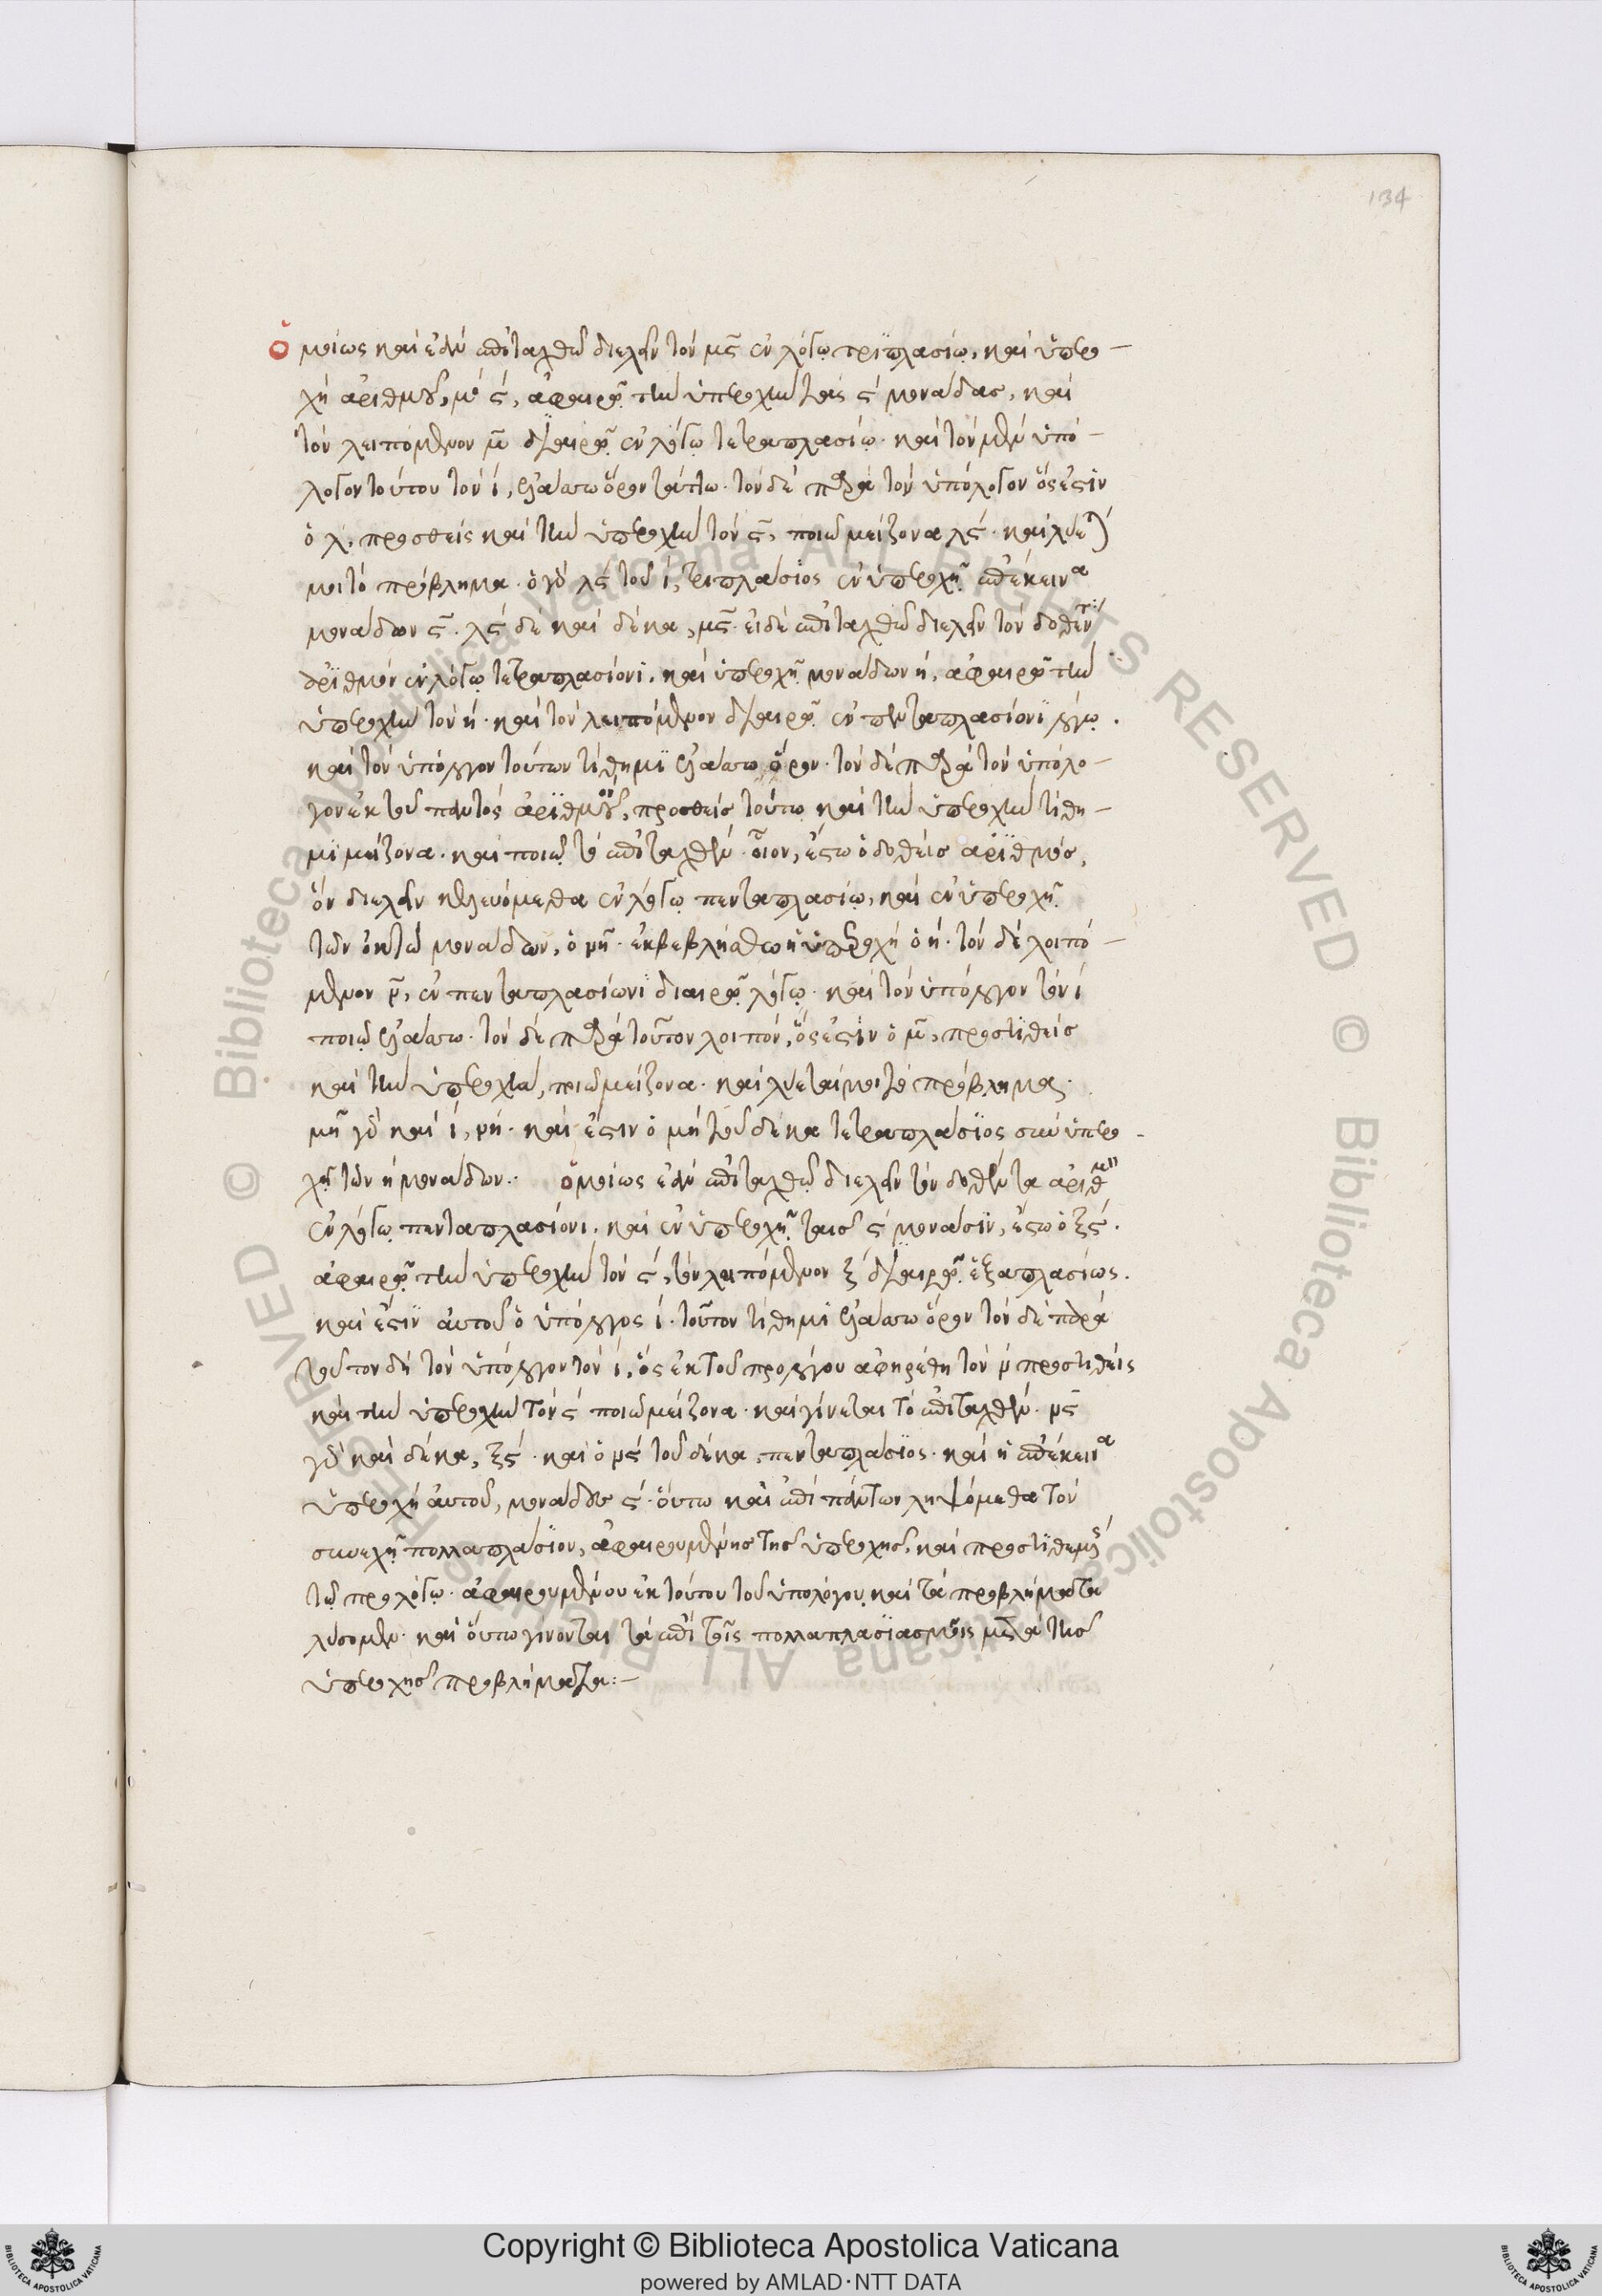 134
ὁμοίως καὶ ἐὰν ἐπιταχθῶ διελεῖν τὸν μς ἐν λόγω τριπλασίω, καὶ ὑπερο-
χῆ ἀριθμοῦ, μο ς, ἀφαιρῶ τὴν ὑπεροχὴν τὰς ς μονάδας, καὶ
τὸν λειπόμενον μ διαιρῶ ἐν λόγω τετραπλασίω. καὶ τὸν μὲν ὑπό-
λογον τούτου τὸν ι, ἐλάττω ὅρον τάττω. τὸν δὲ παρὰ τὸν ὑπόλογον ὅς ἐστιν
ὁ λ, προσθεὶς καὶ τὴν ὑπεροχὴν τὸν ς, ποιῶ μείζονα λς. καὶ λύεται
μοι τὸ πρόβλημα. ὁ γὰρ λς τοῦ ι, τριπλάσιος ἐν ὑπεροχῆ ἐπέκεινα
μονάδων ς. λς δὲ καὶ δέκα, μς. εἰ δὲ ἐπιταχθῶ διελεῖν τὸν δοθέντα
ἀριθμὸν ἐν λόγω τετραπλασίονι, καὶ ὑπεροχῆ μονάδων η, ἀφαιρῶ τὴν
ὑπεροχὴν τὸν η. καὶ τὸν λειπόμενον διαιρῶ ἐν πενταπλασίονι λόγω.
καὶ τὸν ὑπόλογον τούτων τίθημι ἐλάττω ὅρον. τὸν δὲ παρὰ τὸν ὑπόλο-
γον ἐκ τοῦ παντὸς ἀριθμοῦ, προσθεὶς τούτω καὶ τὴν ὑπεροχὴν τίθη-
μι μείζονα. καὶ ποιῶ τὸ ἐπιταχθέν. οἷον, ἔστω ὁ δοθεὶς ἀριθμός,
ὃν διελεῖν κελευόμεθα ἐν λόγω πενταπλασίω, καὶ ἐν ὑπεροχῆ
τῶν ὀκτὼ μονάδων, ὁ νη. ἐκβεβλήσθω ἡ ὑπεροχὴ ὁ η. τὸν δὲ λοιπό-
μενον ν, ἐν πενταπλασίωνι διαιρῶ λόγω. καὶ τὸν ὑπόλογον τὸν ι
ποιῶ ἐλάττω. τὸν δὲ παρὰ τοῦτον λοιπὸν, ὅς ἐστιν ὁ μ, προστιθεὶς
καὶ τὴν ὑπεροχὴν, ποιῶ μείζονα. καὶ λύεταί μοι τὸ πρόβλημα.
μη γὰρ καὶ ι, νη. καὶ ἔστιν ὁ μη τοῦ δέκα τετραπλάσιος σὺν ὑπερο-
χῆ τῶν η μονάδων. ὁμοίως ἐὰν ἐπιταχθῶ διελεῖν τὸν δοθέντα ἀριθμὸν
ἐν λόγω πενταπλασίονι. καὶ ἐν ὑπεροχῆ ταῖς ς μονάσιν, ἔστω ὁ ξς.
ἀφαιρῶ τὴν ὑπεροχὴν τὸν ς, τὸν λειπόμενον ξ διαιρῶ ἑξαπλασίως.
καὶ ἔστιν αὐτοῦ ὁ ὑπόλογος ι. τοῦτον τίθημι ἐλάττω ὅρον τὸν δὲ παρὰ
τοῦτον δὴ τὸν ὑπόλογον τὸν ι, ὃς ἐκ τοῦ προλόγου ἀφηρέθη τὸν ν προστιθεὶς
καὶ τὴν ὑπεροχὴν τὸν ς ποιῶ μείζονα. καὶ γίνεται τὸ ἐπιταχθέν. νς
γὰρ καὶ δέκα, ξς. καὶ ὁ νς τοῦ δέκα, πενταπλάσιος. καὶ ἡ ἐπέκεινα
ὑπεροχὴ αὐτοῦ, μονάδες ς. οὕτω καὶ ἐπὶ πάντων ληψόμεθα τὸν
συνεχῆ πολλαπλάσιον, ἀφαιρουμένης τῆς ὑπεροχῆς, καὶ προστιθεμένης
τῶ προλόγω. ἀφαιρουμένου ἐκ τούτου τοῦ ὑπολόγου, καὶ τὰ προβλήματα
λύσομεν. καὶ οὕτω γίνονται τὰ ἐπὶ τοῖς πολλαπλασιασμοῖς μετὰ τῆς
ὑπεροχῆς προβλήματα:-
Copyright © Biblioteca Apostolica Vaticana
powered by AMLAD·NTT DATA